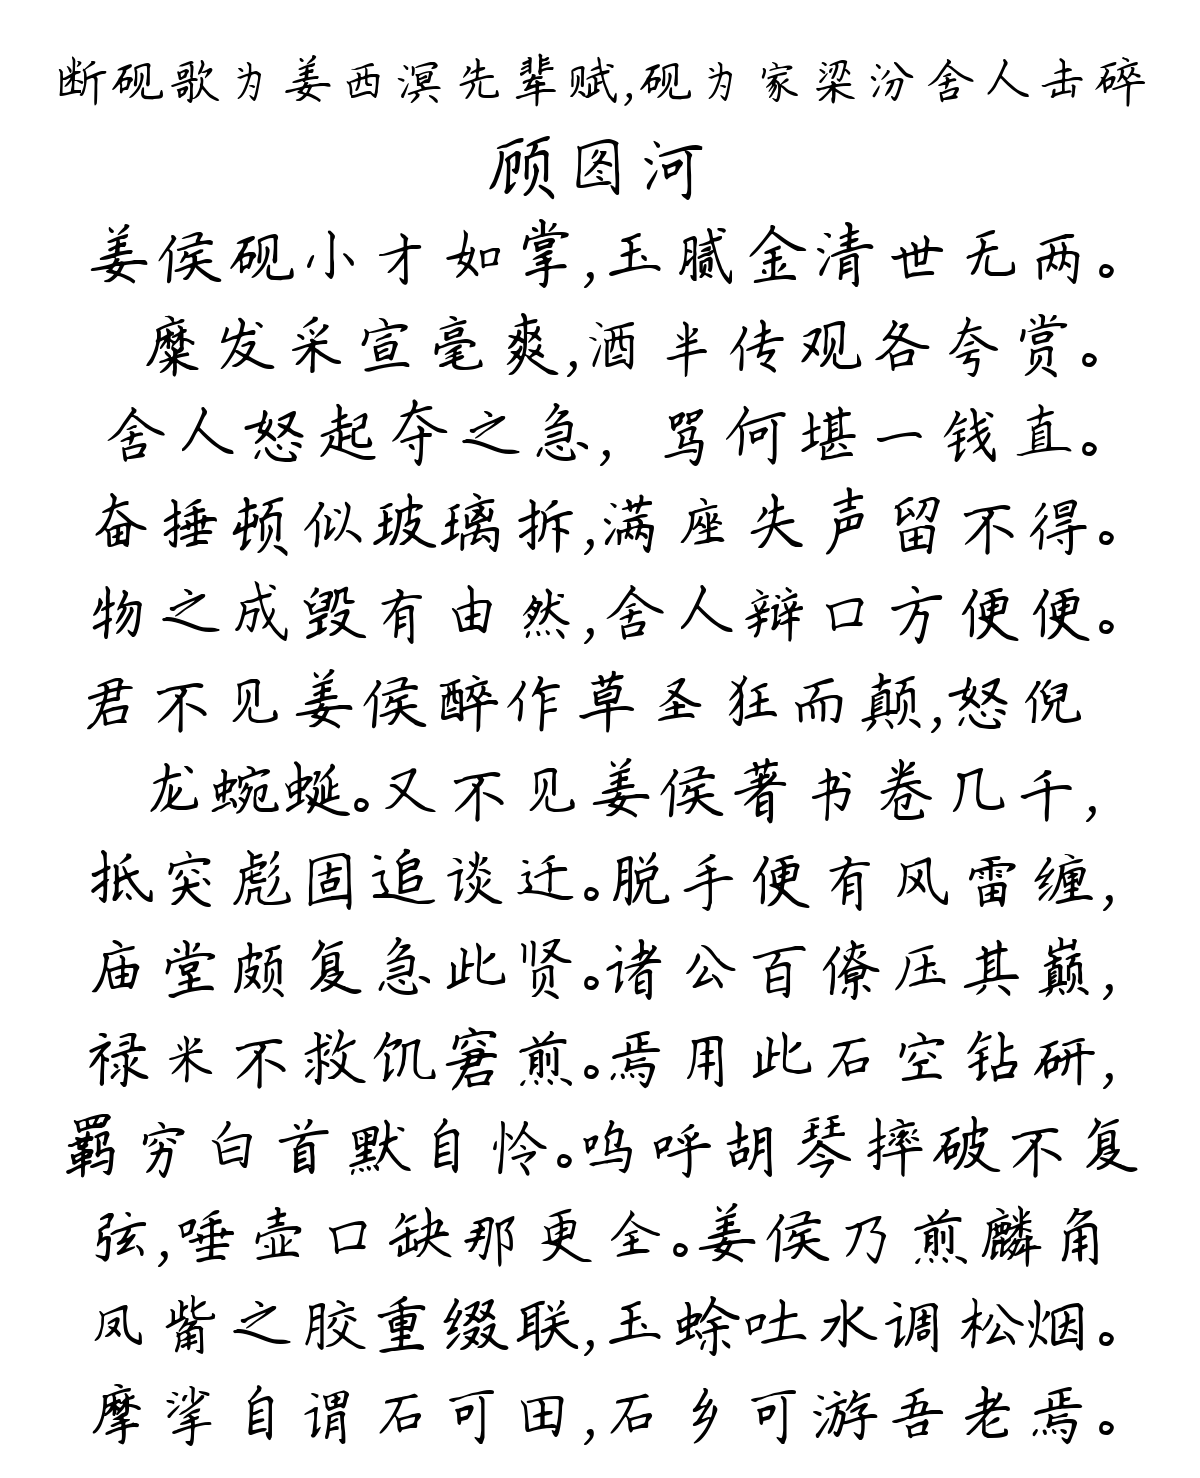 断砚歌为姜西溟先辈赋,砚为家梁汾舍人击碎
顾图河
姜侯砚小才如掌,玉腻金清世无两。
糜发采宣毫爽,酒半传观各夸赏。
舍人怒起夺之急，骂何堪一钱直。
奋捶顿似玻璃拆,满座失声留不得。
物之成毁有由然,舍人辩口方便便。
君不见姜侯醉作草圣狂而颠,怒倪
龙蜿蜒。又不见姜侯著书卷几千,
抵突彪固追谈迁。脱手便有风雷缠,
庙堂颇复急此贤。诸公百僚压其巅,
禄米不救饥窘煎。焉用此石空钻研,
羁穷白首默自怜。呜呼胡琴摔破不复
弦,唾壶口缺那更全。姜侯乃煎麟角
凤觜之胶重缀联,玉蜍吐水调松烟。
摩挲自谓石可田,石乡可游吾老焉。